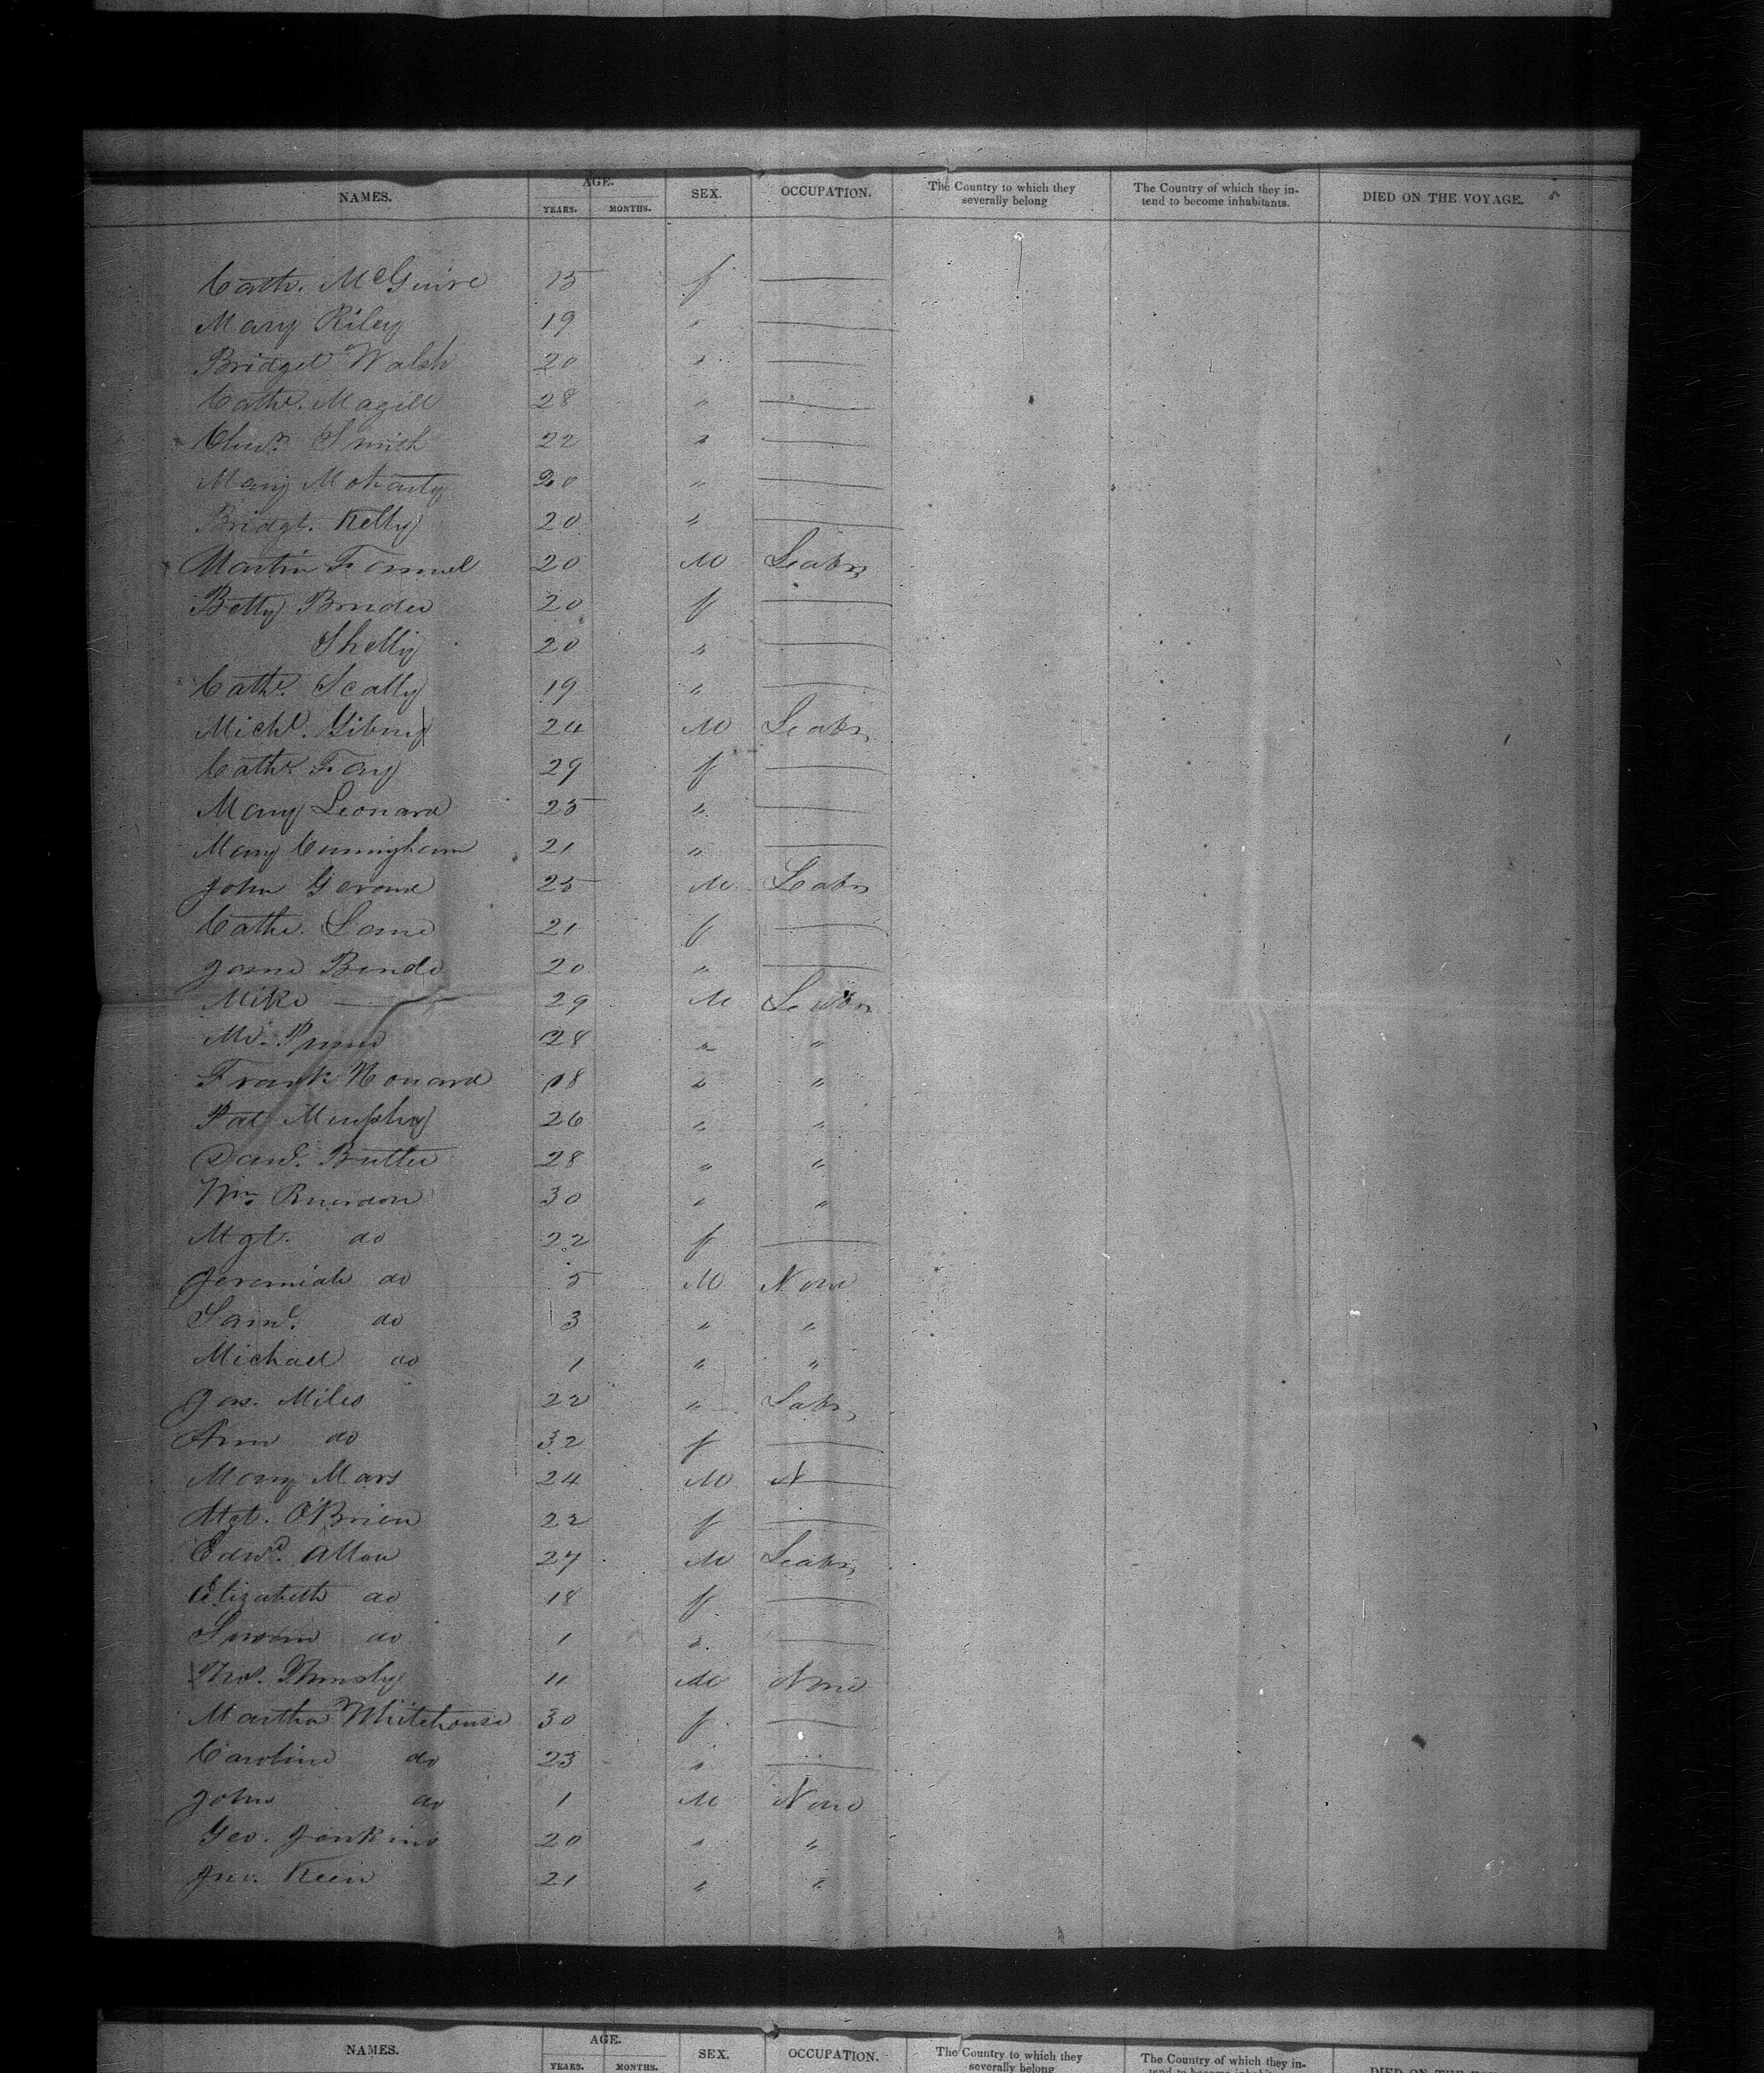 NAMES. AGE. YEARS. MONTHS. SEX. OCCUPATION. The Country to which they severally belong The Country of which they intend to become inhabitants. DIED ON THE VOYAGE. 5
Cath. McGuire 15 f —
Mary Riley 19 " —
Bridget Walsh 20 " —
Cathe. Magill 28 " —
Smith 22 " —
Mary 20 " —
Bridgt. Kelly 20 " —
Martin 20 M Labr
Betty 20 f —
Shelly 20 " —
Cathe. Scally 19 " —
Michl. Gibny 24 M Labr
Cathe. Fay 29 f —
Mary Leonard 25 " —
Mary Cunningham 21 " —
John 25 M Labr
Cathe. Lane 21 f —
Jane 20 " —
Mike — 29 M Labr
28 " "
Frank Howard 18 " "
Pat Murphy 26 " "
Danl. Butler 28 " "
Wm 30 " "
Mgt. do 22 f —
Jeremiah do 5 M None
Saml. do 3 " "
Michael do 1 " "
Jas. Miles 22 " Labr
Ann do 32 f —
Mary Mars 24 M N—
Mgt. O'Brien 22 f —
Edwd. 27 M Labr
Elizabeth do 18 f —
do 1 " —
Thos. 11 M None
Martha Whitehouse 30 f —
Caroline do 23 " —
John do 1 M None
Geo. Jenkins 20 " "
Jno. Keen 21 " "
NAMES. AGE. YEARS. MONTHS. SEX. OCCUPATION. The Country to which they severally belong The Country of which they in-